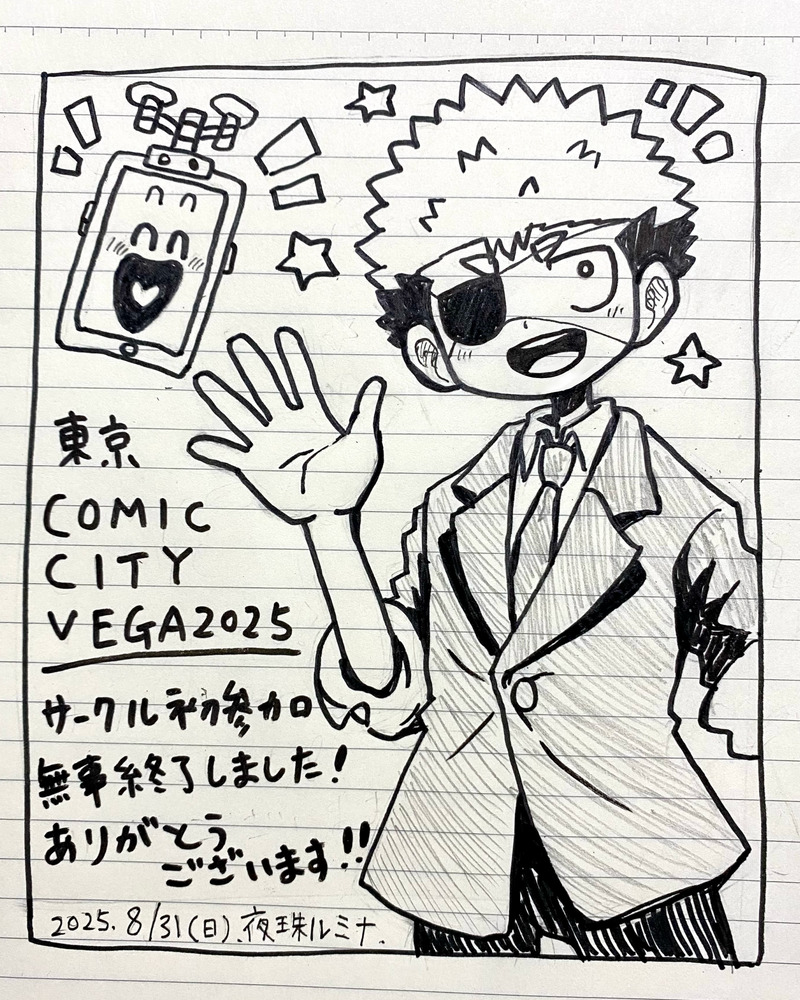 東京
COMIC
CITY
VEGA2025
サークル初参加
無事終了しました!
ありがとう
ございます!!
2025.8/31(日).夜珠ルミナ.